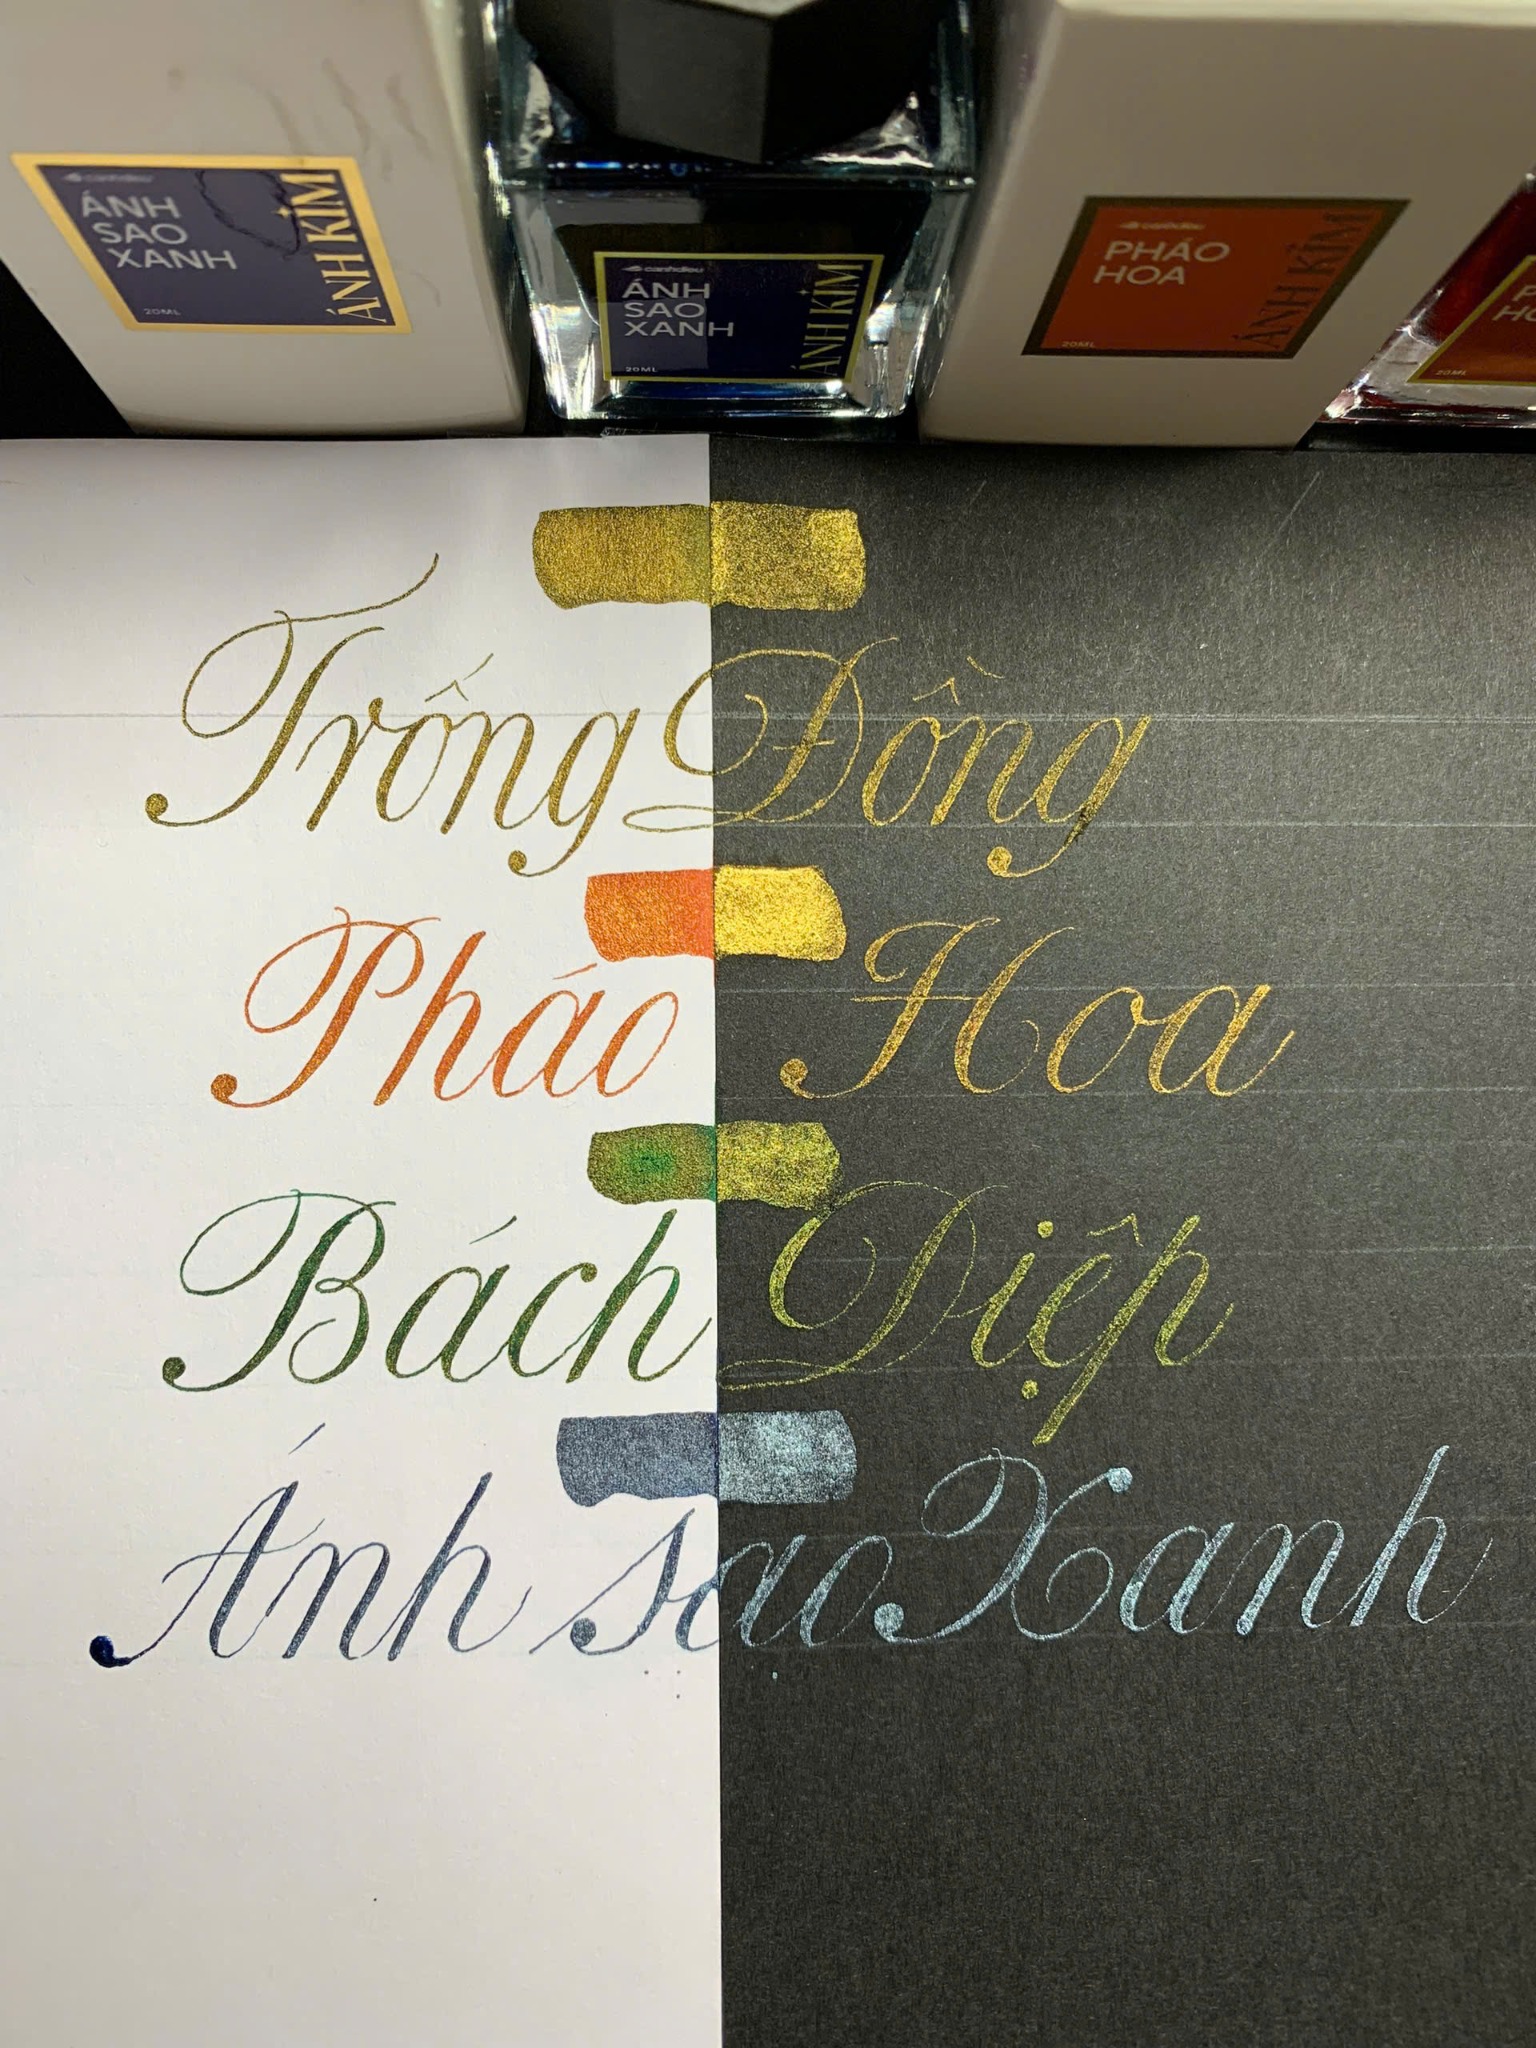 canhdieu
ÁNH
SAO
XANH
ÁNH KIM
20ML
canhdieu
ÁNH
SAO
XANH
ÁNH KIM
20ML
canhdieu
PHÁO
HOA
ÁNH KIM
20ML
20ML
Trống Đồng
Pháo Hoa
Bách Diệp
Ánh sao Xanh